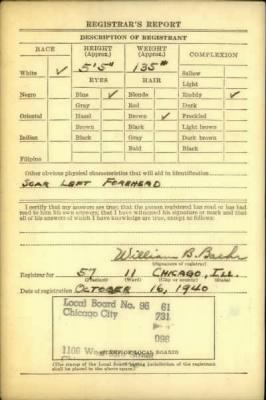 REGISTRAR'S REPORT
DESCRIPTION OF REGISTRANT
RACE HEIGHT (Approx.) WEIGHT (Approx.) COMPLEXION
White ✓ 5'5" 135 Sallow
EYES HAIR Light
Negro Blue ✓ Blonde Ruddy ✓
Gray Red Dark
Oriental Hazel Brown ✓ Freckled
Brown Black Light brown
Indian Black Gray Dark brown
Bald Black
Filipino
Other obvious physical characteristics that will aid in identification
SCAR LEFT FOREHEAD
I certify that my answers are true; that the person registered has read or has had
read to him his own answers; that I have witnessed his signature or mark and that
all of his answers of which I have knowledge are true, except as follows:
William B.
(Signature of registrar)
Registrar for 57 11 CHICAGO, ILL.
(Precinct) (Ward) (City or county) (State)
Date of registration OCTOBER 16, 1940
Local Board No. 96 61
Chicago City 731
096
1109
(The stamp of the Local Board having jurisdiction of the registrant
shall be placed in the above space.)